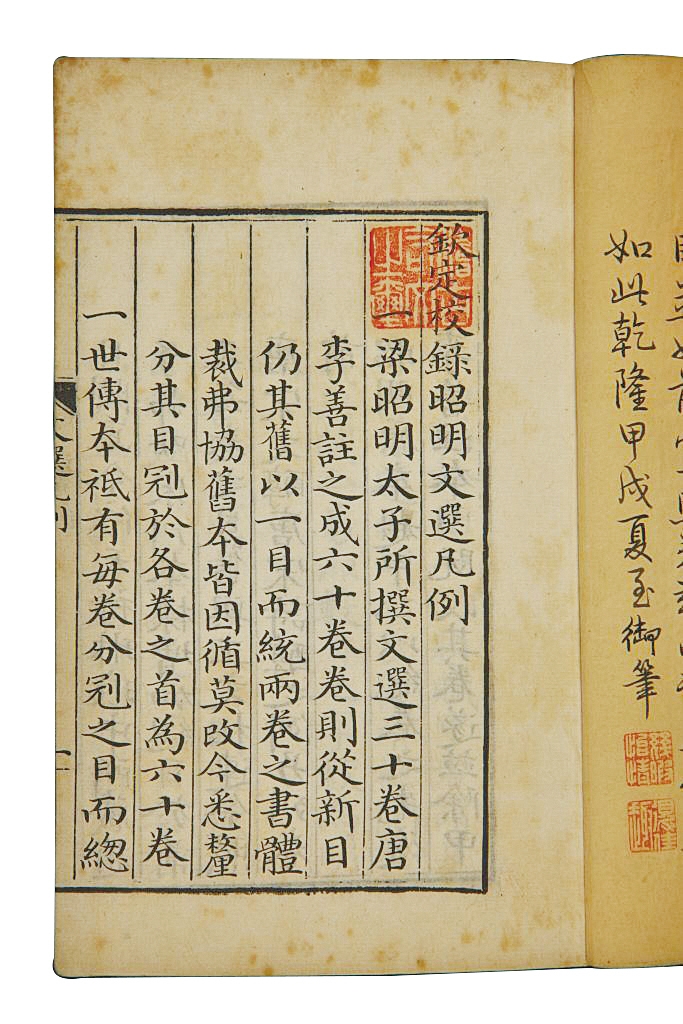 如此乾隆甲戌夏至御筆
欽定校錄昭明文選凡例
一梁昭明太子所撰文選三十卷唐
李善註之成六十卷卷則從新目
仍其舊以一目而統兩卷之書體
裁弗協舊本皆因循莫改今悉釐
分其目冠於各卷之首為六十卷
一世傳本祗有每卷分冠之目而緫
文選凡例
一